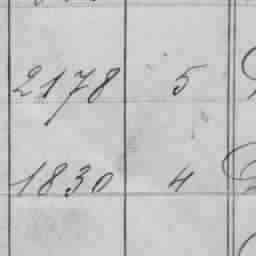 2178 5
1830 4